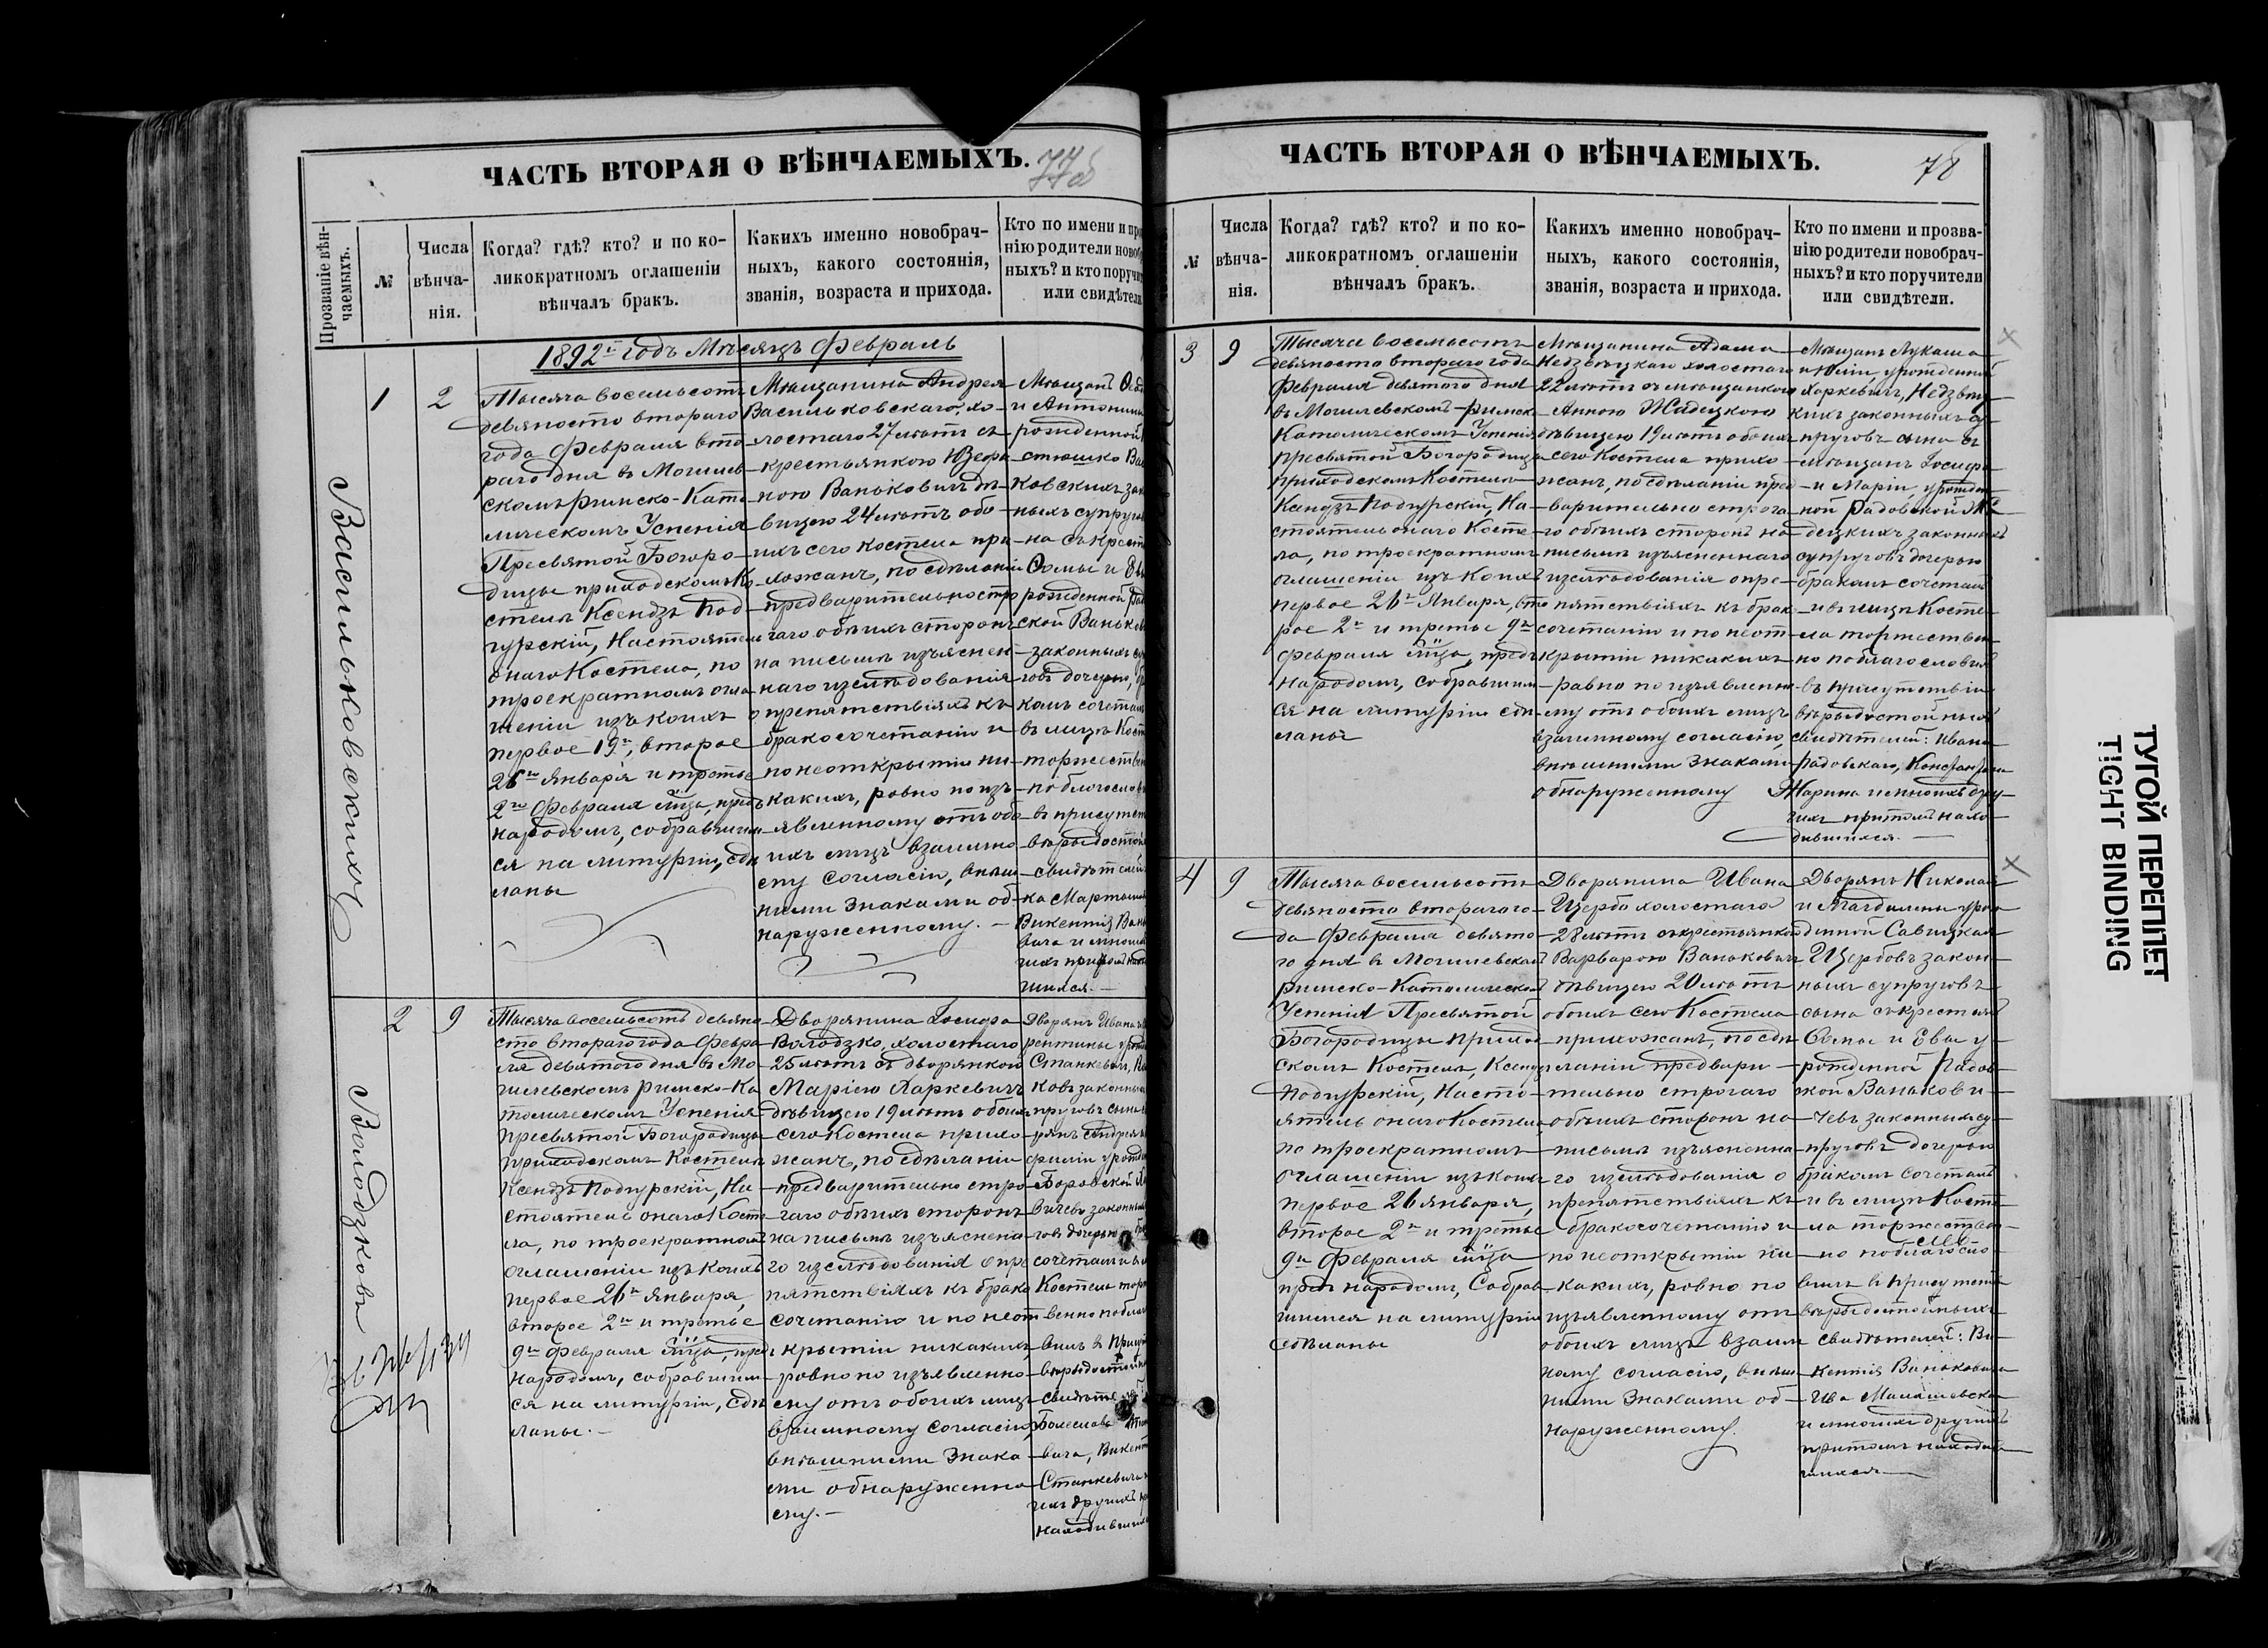 ЧАСТЬ ВТОРАЯ О ВѢНЧАЕМЫХЪ.
Прозваніе вѣн-
чаемыхъ.
№
Числа
вѣнча-
нія.
Когда? гдѣ? кто? и по ко-
ликократномъ оглашеніи
вѣнчалъ бракъ.
Какихъ именно новобрач-
ныхъ, какого состоянія,
званія, возраста и прихода.
Кто по имени и про
нію родители новоб
ныхъ? и кто поручи
или свидѣтел
1892й годъ Мѣсяцъ Февраль
Васильковскихъ
1
2
Тысяча восемьсотъ
девяносто втораго
года Февраля вто
раго дня въ Могилев
скомъ Римско-Като
лическомъ Успенія
Пресвятой Богоро-
дицы приходскомъ Ко
стелѣ Ксендзъ Под
гурскій, Настоятель
онаго Костела, по
троекратномъ огла
шеніи изъ коихъ
первое 19го, второе
26го Января и третье
2го Февраля мѣсяца, предъ
народомъ, собравшим
ся на литургію, сдѣ
ланы
Мѣщанина Андрея
Васильковскаго, хо-
лостаго 27 лѣтъ съ
крестьянкою Юзефа
ною Ваньковичъ дѣ-
вицею 24 лѣтъ обо
ихъ сего Костела при-
хожанъ, по сдѣланіи
предварительно стро
гаго обѣихъ сторонъ
на письмѣ изъяснен-
наго изслѣдованія
о препятствіяхъ къ
бракосочетанію и
по неоткрытіи ни-
какихъ, равно по изъ-
явленному отъ обо
ихъ лицъ взаимно
му согласію, внѣш
ними знаками об-
наруженному. -
Мѣщанъ
и Антонины
рожденной
стюшко Ва
ковскихъ зак
ныхъ супругов
на съ крест
Ѳомы и Ев
рожденной
ской Ваньков
законныхъ с
говъ дочерью,
комъ сочетал
въ лицѣ Кост
торжествен
поблагослов
въ присутст
вѣрыдостой
свидѣтелей
ка Мартын
Викентія Вань
вича и многих
гихъ притомъ нахо
шихся. -
Володзковъ
2
9
Тысяча восемьсотъ девяно
сто втораго года Февра
ля девятого дня въ Мо
гилевскомъ Римско-Ка
толическомъ Успенія
Пресвятой Богородицы
Приходскомъ Костелѣ
Ксендзъ Подгурскій, На
стоятель онаго Косте
ла, по троекратномъ
оглашеніи изъ коихъ
первое 26го Января,
второе 2го и третье
9го Февраля мѣсяца, предъ
народомъ, собравшим
ся на литургію, сдѣ
ланы. -
Дворянина Іосифа
Володзко, холостаго
25 лѣтъ съ дворянкою
Маріею Харкевичъ
дѣвицею 19 лѣтъ обоихъ
сего Костела прихо
жанъ, по сдѣланіи
предварительно стро
гаго обѣихъ сторонъ
на письмѣ изъяснена
го изслѣдованія о пре
пятствіяхъ къ брако
сочетанію и по неот
крытіи никакихъ,
равно по изъявленно
му отъ обоихъ лицъ
взаимному согласію,
внѣшними знака
ми обнаруженно
му. -
Дворянъ Ивана и
рентины урож
Станкевичъ, Во
ковъ законны
пруговъ сына
рянъ Андрея и
филіи урожд
Боровской
вичевъ законны
говъ дочерью
сочеталъ и въ
Костела торж
венно поблаг
вилъ въ прису
вѣрыдостойн
свидѣтелей
Болеслава
вича, Викент
Станкевича
гихъ другихъ
находившихс
ЧАСТЬ ВТОРАЯ О ВѢНЧАЕМЫХЪ.
78
№
Числа
вѣнча-
нія.
Когда? гдѣ? кто? и по ко-
ликократномъ оглашеніи
вѣнчалъ бракъ.
Какихъ именно новобрач-
ныхъ, какого состоянія,
званія, возраста и прихода.
Кто по имени и прозва-
нію родители новобрач-
ныхъ? и кто поручители
или свидѣтели.
3
9
Тысяча восемьсотъ
девяносто втораго года
Февраля девятого дня
въ Могилевскомъ-Римско
Католическомъ Успенія
Пресвятой Богородицы
Приходскомъ Костелѣ
Ксендзъ Подгурскій, На
стоятель онаго Косте-
ла, по троекратномъ
оглашеніи изъ коихъ
первое 26го Января, вто
рое 2го и третье 9го
Февраля мѣсяца, предъ
народомъ, собравшим
ся на литургію сдѣ
ланы
Мѣщанина Адама
Недзвѣцкаго холостаго
22 лѣтъ съ мѣщанкою
Анною Жадецкою
дѣвицею 19 лѣтъ обоихъ
сего Костела прихо
жанъ, по сдѣланіи пред
варительно строга
го обѣихъ сторонъ на
письмѣ изъясненнаго
изслѣдованія о пре-
пятствіяхъ къ брако
сочетанію и по неот
крытіи никакихъ
равно по изъявленно
му отъ обоихъ лицъ
взаимному согласію,
внѣшними знаками
обнаруженному
Мѣщанъ Лукаша
и Юліи, урожденной
Харкевичъ, Недзвѣц
кихъ законныхъ су-
пруговъ сына съ
мѣщанъ Іосифа
и Маріи, урожден
ной Радовской Жа
децкихъ законныхъ
супруговъ дочерью
бракомъ сочеталъ
и въ лицѣ Косте-
ла торжествен
но поблагословилъ
въ присутствіи
вѣрыдостойныхъ
свидѣтелей: Ивана
Радовскаго, Константина
Жарина и многихъ дру-
гихъ притомъ нахо-
дившихся. -
4
9
Тысяча восемьсотъ
девяносто втораго го-
да Февраля девято-
го дня въ Могилевскомъ
Римско-Католическомъ
Успенія Пресвятой
Богородицы Приход
скомъ Костелѣ, Ксендзъ
Подгурскій, Насто-
ятель онаго Костела,
по троекратномъ
оглашеніи изъ коихъ
первое 26 Января,
второе 2го и третье
9го Февраля мѣсяца
предъ народомъ, Собрав
шимся на литургію
сдѣланы
Дворянина Ивана
Щерба холостаго
28 лѣтъ съ крестьянкою
Варварою Ваньковичъ
дѣвицею 20 лѣтъ
обоихъ сего Костела
прихожанъ, по сдѣ
ланіи предвари-
тельно строгаго
обѣихъ сторонъ на
письмѣ изъясненна
го изслѣдованія о
препятствіяхъ къ
бракосочетанію и
по неоткрытіи ни-
какихъ, равно по
изъявленному отъ
обоихъ лицъ взаим
ному согласію, внѣш
ними знаками об-
наруженному.
Дворянъ Николая
и Магдалины урож
денной Савицкая
Щербовъ закон-
ныхъ супруговъ
сына съ крестьянъ
Ѳомы и Евы у-
рожденной Радов-
ской Ванькови-
чевъ законныхъ су-
пруговъ дочерью
бракомъ сочеталъ
и въ лицѣ Косте
ла торжествен-
но поблагосло-
вилъ въ присутств
вѣрыдостойныхъ
свидѣтелей: Ви-
кентія Ваньковича
Ива Малашевска
и многихъ другихъ
притомъ находив
шихся
ТУГОЙ ПЕРЕПЛЕТ
TIGHT BINDING